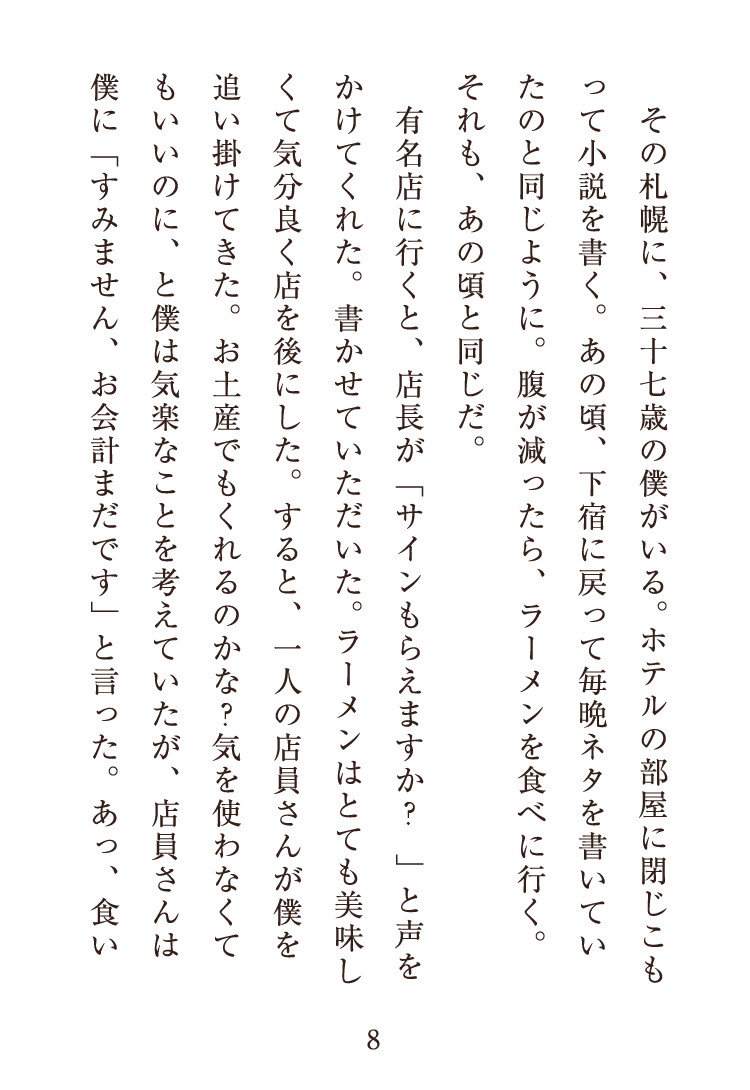 その札幌に、三十七歳の僕がいる。ホテルの部屋に閉じこも
って小説を書く。あの頃、下宿に戻って毎晩ネタを書いてい
たのと同じように。腹が減ったら、ラーメンを食べに行く。
それも、あの頃と同じだ。
　有名店に行くと、店長が「サインもらえますか？　」と声を
かけてくれた。書かせていただいた。ラーメンはとても美味し
くて気分良く店を後にした。すると、一人の店員さんが僕を
追い掛けてきた。お土産でもくれるのかな？気を使わなくて
もいいのに、と僕は気楽なことを考えていたが、店員さんは
僕に「すみません、お会計まだです」と言った。あっ、食い
8